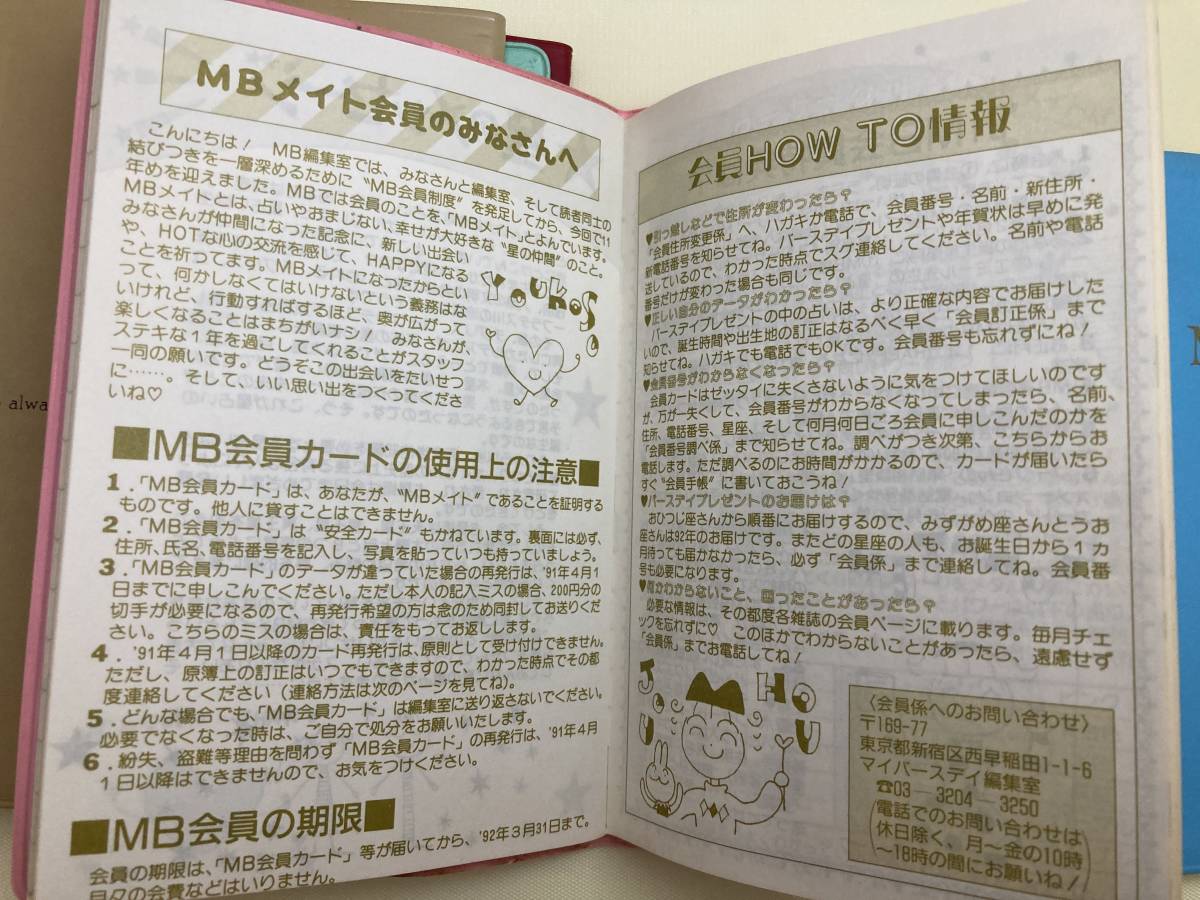 MBメイト会員のみなさんへ
こんにちは！ MB編集室では、みなさんと編集室、そして読者同士の
結びつきを一層深めるために“MB会員制度”を発足してから、今回で11
年めを迎えました。MBでは会員のことを、「MBメイト」とよんでいます。
MBメイトとは、占いやおまじない、幸せが大好きな“星の仲間”のこと。
みなさんが仲間になった記念に、新しい出会い
や、HOTな心の交流を感じて、HAPPYになる
ことを祈ってます。MBメイトになったからとい
って、何かしなくてはいけないという義務はな
いけれど、行動すればするほど、奥が広がって
楽しくなることはまちがいナシ！ みなさんが、
ステキな1年を過ごしてくれることがスタッフ
一同の願いです。どうぞこの出会いをたいせつ
に……。そして、いい思い出をつくってくださ
いね♡
YOUKOS
■MB会員カードの使用上の注意■
1．「MB会員カード」は、あなたが、“MBメイト”であることを証明する
ものです。他人に貸すことはできません。
2．「MB会員カード」は“安全カード”もかねています。裏面には必ず、
住所、氏名、電話番号を記入し、写真を貼っていつも持っていましょう。
3．「MB会員カード」のデータが違っていた場合の再発行は、'91年4月1
日までに申しこんでください。ただし本人の記入ミスの場合、200円分の
切手が必要になるので、再発行希望の方は念のため同封してお送りくだ
さい。こちらのミスの場合は、責任をもってお返しします。
4．'91年4月1日以降のカード再発行は、原則として受け付けできません。
ただし、原簿上の訂正はいつでもできますので、わかった時点でその都
度連絡してください（連絡方法は次のページを見てね）。
5．どんな場合でも、「MB会員カード」は編集室に送り返さないでください。
必要でなくなった時は、ご自分で処分をお願いいたします。
6．紛失、盗難等理由を問わず「MB会員カード」の再発行は、'91年4月
1日以降はできませんので、お気をつけください。
■MB会員の期限■
会員の期限は、「MB会員カード」等が届いてから、'92年3月31日まで。
月々の会費などはいりません。
会員HOW TO情報
♥引っ越しなどで住所が変わったら？
「会員住所変更係」へ、ハガキか電話で、会員番号・名前・新住所・
新電話番号を知らせてね。バースデイプレゼントや年賀状は早めに発
送しているので、わかった時点でスグ連絡してください。名前や電話
番号だけが変わった場合も同じです。
♥正しい自分のデータがわかったら？
バースデイプレゼントの中の占いは、より正確な内容でお届けした
いので、誕生時間や出生地の訂正はなるべく早く「会員訂正係」まで
知らせてね。ハガキでも電話でもOKです。会員番号も忘れずにね！
♥会員番号がわからなくなったら？
会員カードはゼッタイに失くさないように気をつけてほしいのです
が、万が一失くして、会員番号がわからなくなってしまったら、名前、
住所、電話番号、星座、そして何月何日ごろ会員に申しこんだのかを
「会員番号調べ係」まで知らせてね。調べがつき次第、こちらからお
電話します。ただ調べるのにお時間がかかるので、カードが届いたら
すぐ“会員手帳”に書いておこうね！
♥バースデイプレゼントのお届けは？
おひつじ座さんから順番にお届けするので、みずがめ座さんとうお
座さんは92年のお届けです。またどの星座の人も、お誕生日から1カ
月待っても届かなかったら、必ず「会員係」まで連絡してね。会員番
号も必要になります。
♥何かわからないこと、困ったことがあったら？
必要な情報は、その都度各雑誌の会員ページに載ります。毎月チェ
ックを忘れずに♡ このほかでわからないことがあったら、遠慮せず
「会員係」までお電話してね！
JOU
HOU
〈会員係へのお問い合わせ〉
〒169-77
東京都新宿区西早稲田1-1-6
マイバースデイ編集室
☎03―3204―3250
（電話でのお問い合わせは
休日除く、月～金の10時
～18時の間にお願いね！）
alwa